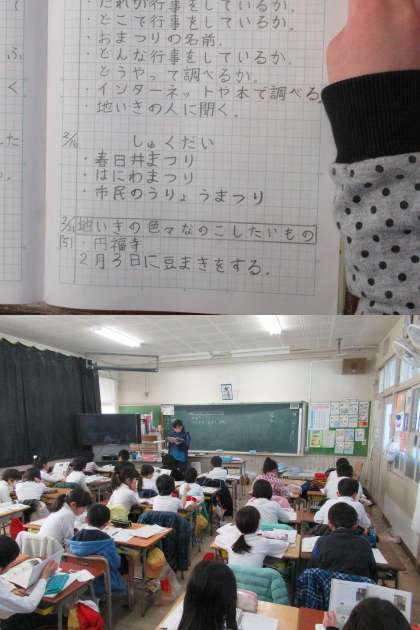 ・だれが行事をしているか.
・どこで行事をしているか.
・おまつりの名前.
・どんな行事をしているか.
・どうやって調べるか.
・インターネットや本で調べる.
・地いきの人に聞く.
2/16 しゅくだい
・春日井まつり
・はにわまつり
・市民のうりょうまつり
地いきの色々なのこしたいもの
・円福寺
2月3日に豆まきをする.